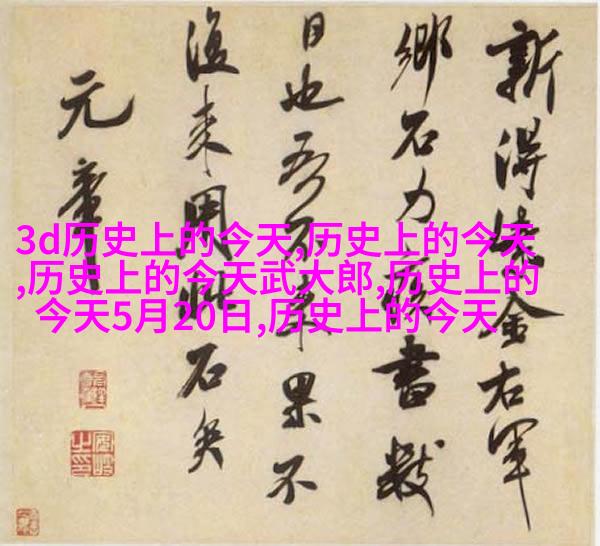 3d历史上的今天,历史上的今天
,历史上的今天武大郎,历史上的
今天5月20日,历史上的今天
新得紫金右軍
鄉石力疾書數
日也吾不来果不
復来用此石矣
元章